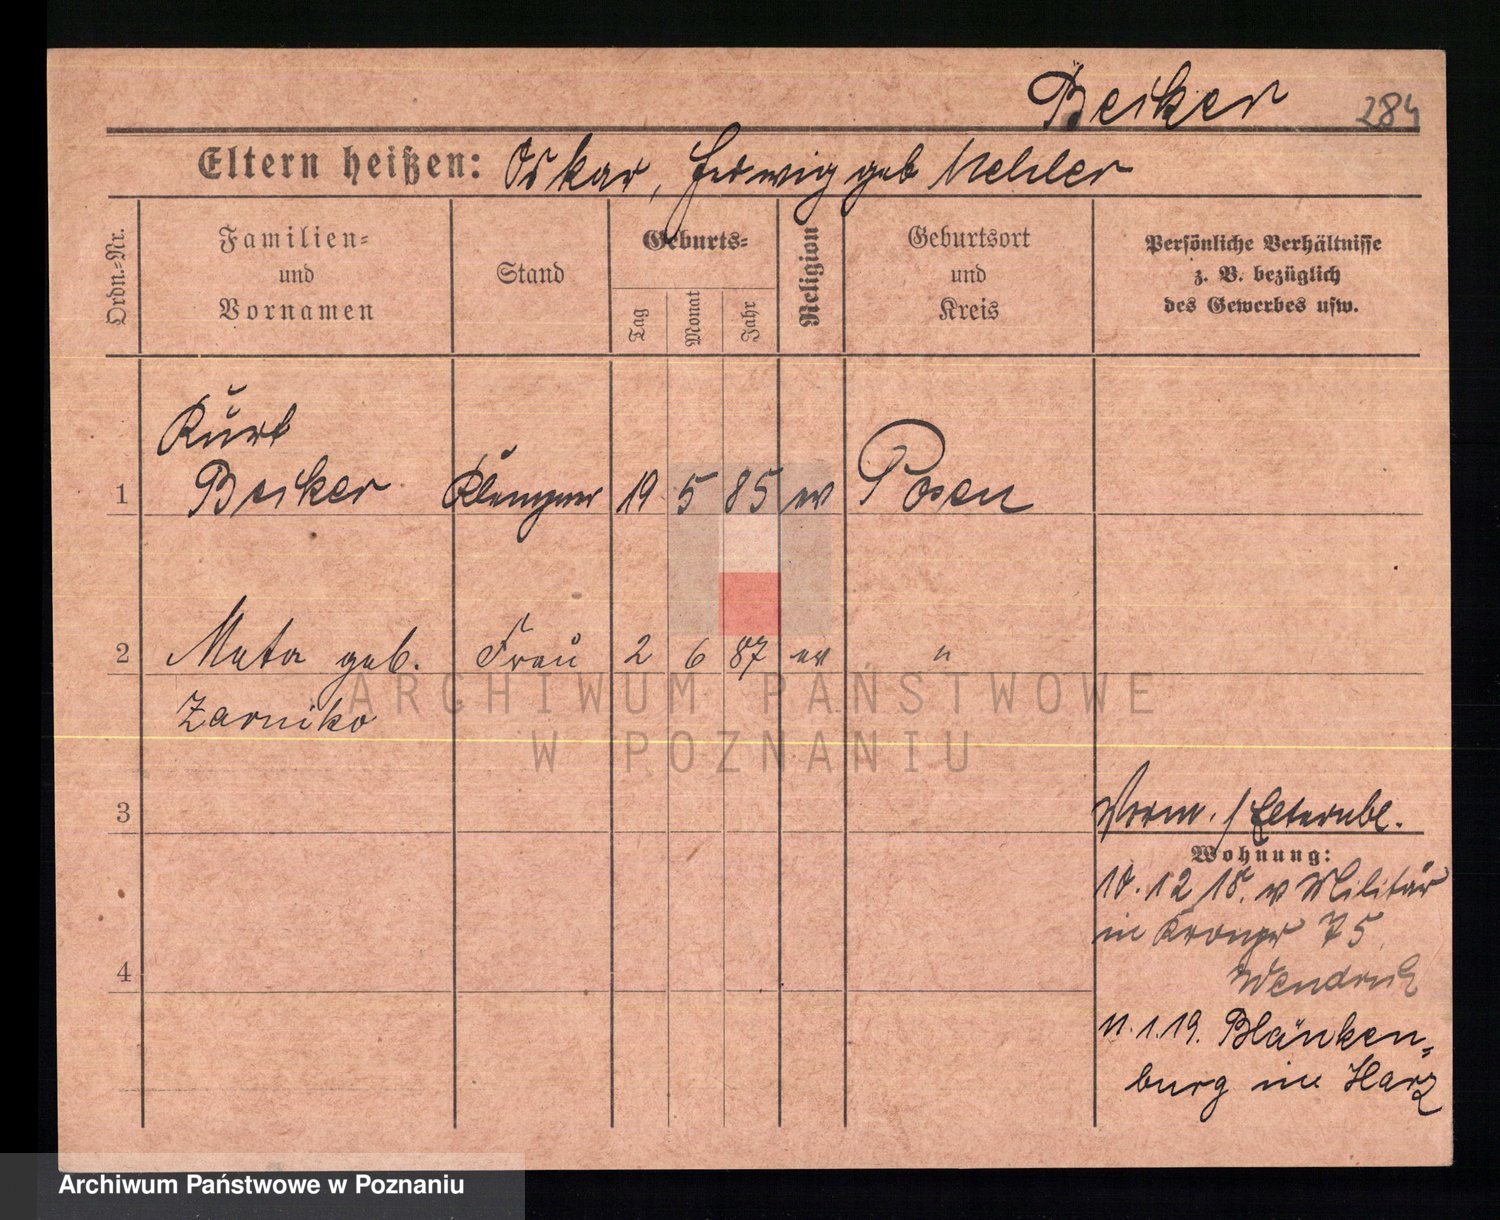 Beiker 284
Eltern heißen: Oskar, Hedwig geb Mehler
Ordn.-Nr.
Familien-
und
Vornamen
Stand
Geburts-
Tag
Monat
Jahr
Religion
Geburtsort
und
Kreis
Persönliche Verhältnisse
z. B. bezüglich
des Gewerbes usw.
Kurt
1 Beiker Klempner 19 5 85 ev Posen
2 Meta geb. Frau 2 6 87 ev "
Zarniko
ARCHIWUM PAŃSTWOWE
W POZNANIU
3
Elternbl.
Wohnung:
10.12 18. v Militär
in Kronpr 75
4
11.1.19. Blanken-
burg im Harz
Archiwum Państwowe w Poznaniu